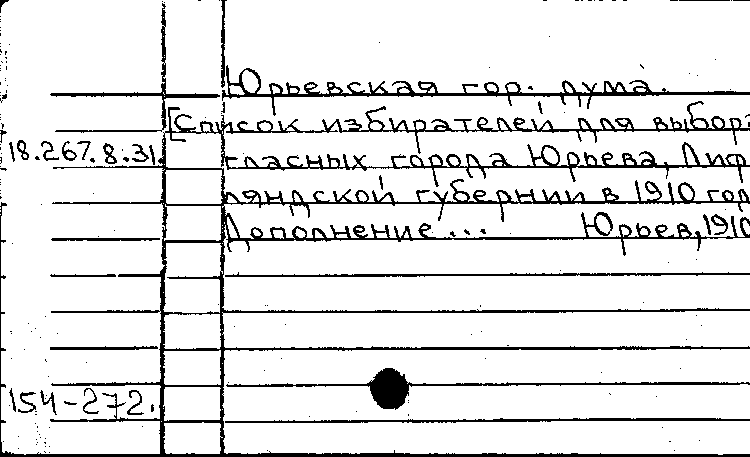 Юрьевская гор. дума.
[Список избирателей для выбора
18.267.8.31. гласных города Юрьева, Лиф
ляндской губернии в 1910 год
Дополнение... Юрьев, 1910
154-272.